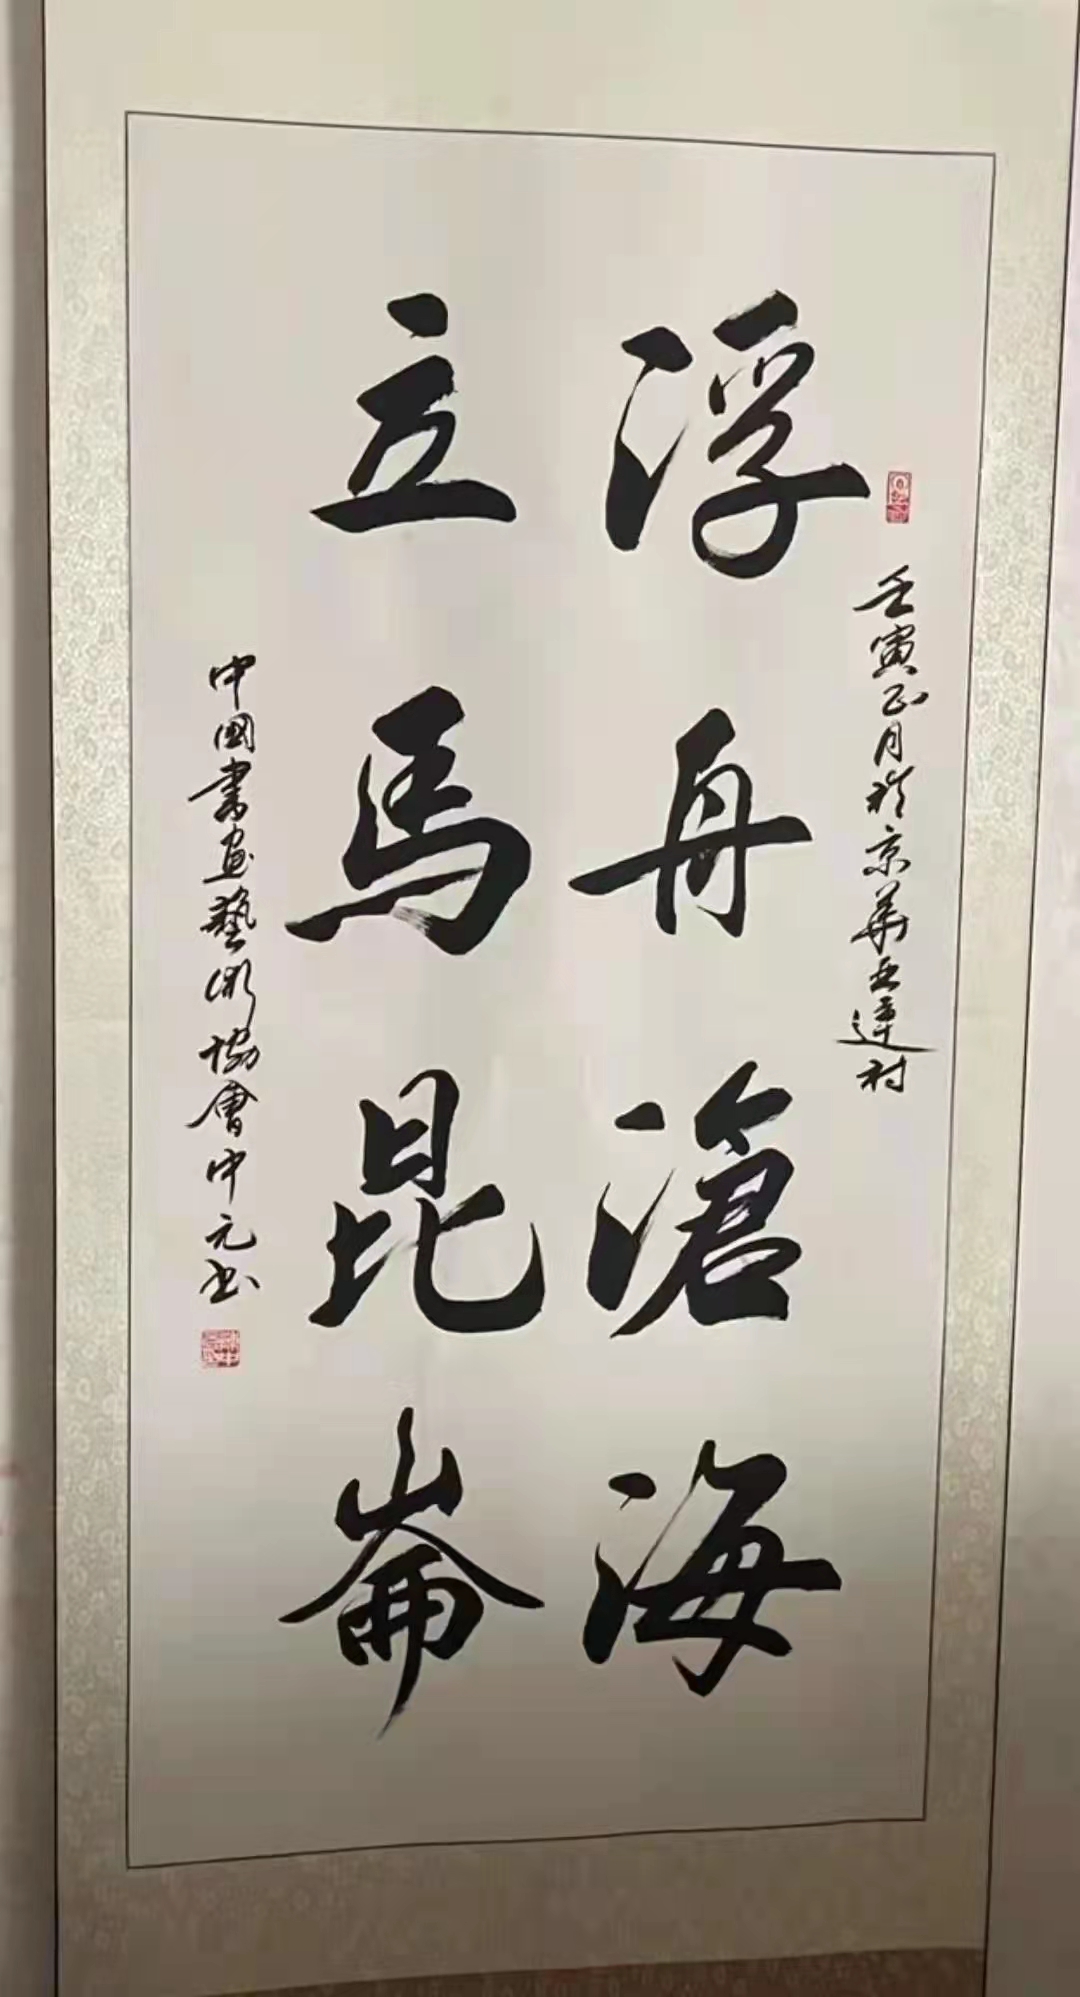 壬寅正月於京華亞運村
浮舟滄海
立馬昆崙
中國書畫藝術協會中元书